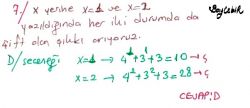 7/ x yerine x=1 ve x=2
yazıldığında her iki durumda da
çift olan şıkkı arıyoruz.
D/ seçeneği x=1 → 4¹+3¹+3=10 → ç
x=2 → 4²+3²+3=28 → ç
CEVAP: D